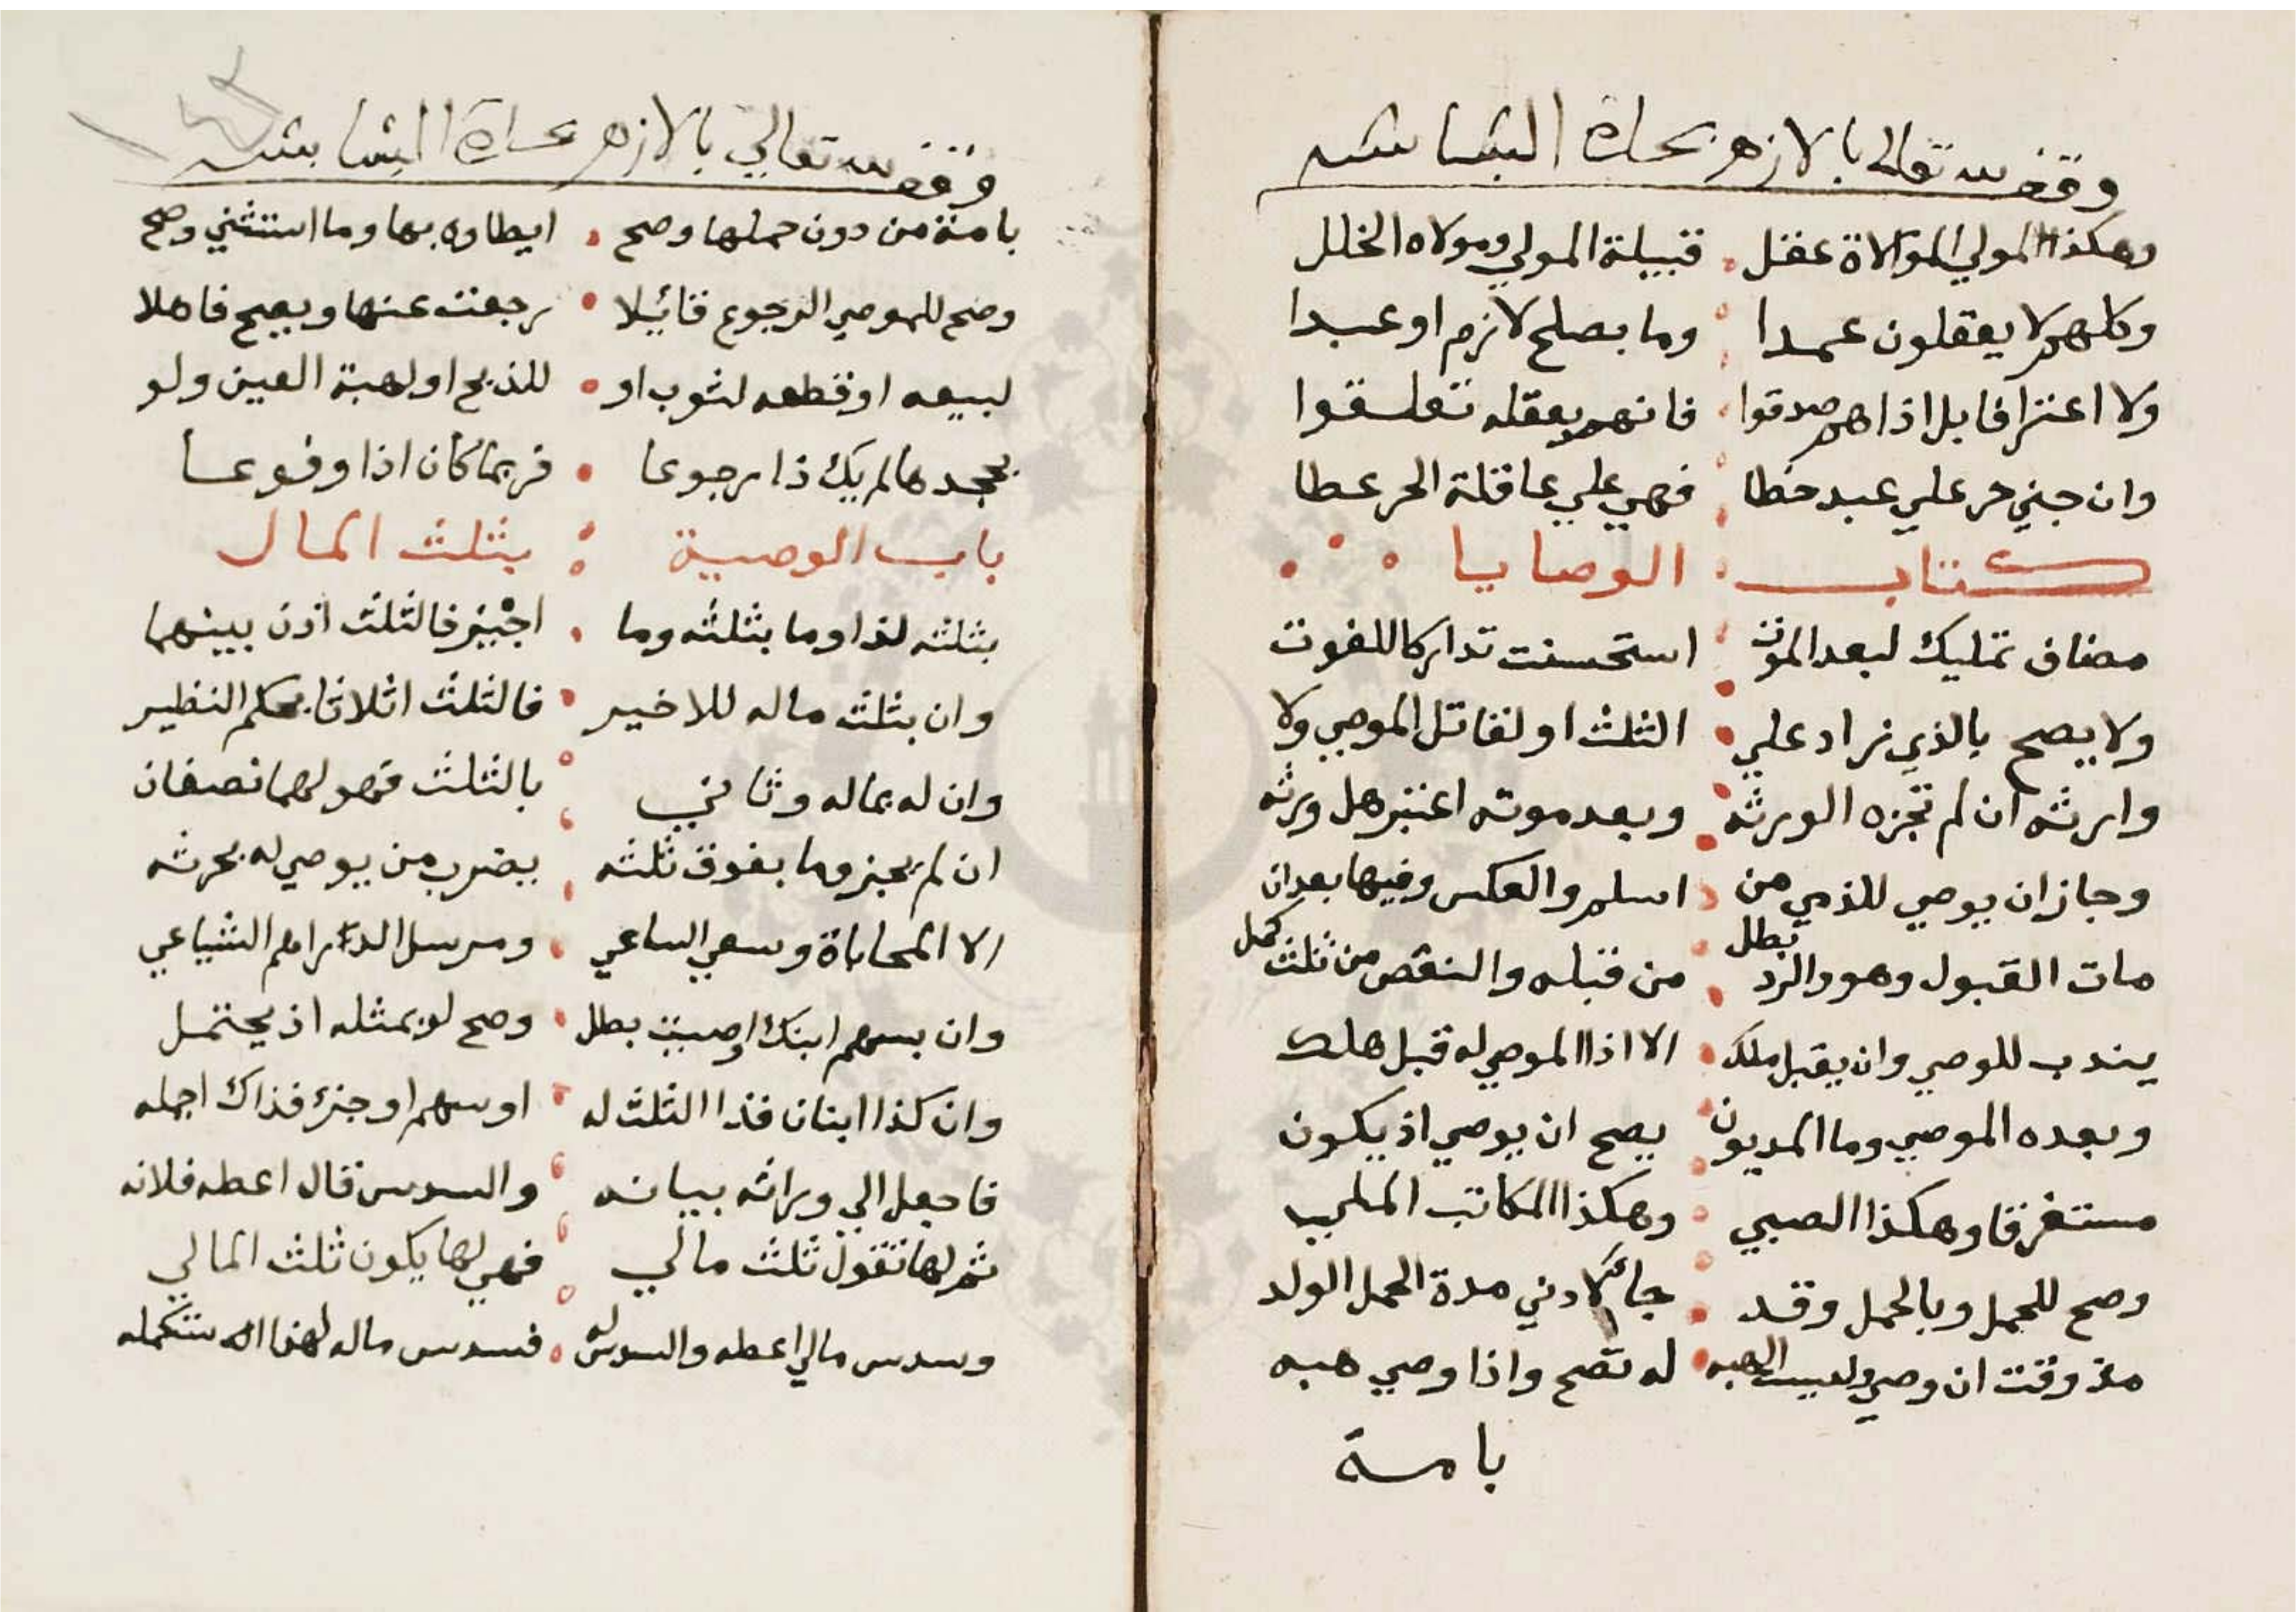 وقف لله تعالى بالازهر بحارة البشابشه
وهكذا المولي الموالاة عقل قبيلة المولي ومولاه الخلل
وكلهم لا يعقلون عمدا وما بصلح لازم او عبدا
ولا اعترافا بل اذا هم صدقوا فانهم بعقله تعلقوا
وان جني حر علي عبد خطا فهي علي عاقلة الحر عطا
كتاب الوصايا
مضاف تمليك لبعد الموت استحسنت تداركا للفوت
ولا يصح بالذي زاد علي الثلث او لقاتل الموصي ولا
وارثه ان لم تجزه الورثه وبعد موته اعتبر هل ورثه
وجاز ان يوصي للذمي من اسلم والعكس وفيها بعد ان
مات القبول وهو والرد بطل من قبله والنقص من ثلث كمل
يندب للوصي وان يقبل ملك الا اذا الموصي له قبل هلك
وبعده الموصي وما المديون يصح ان يوصي اذ يكون
مستغرقا وهكذا الصبي وهكذا المكاتب
وصح للحمل وبالحمل وقد جا لادني مدة الحمل الولد
مذ وقت ان وصي وليست الهبه له تصح واذا وصي هبه
بامة
وقف لله تعالي بالازهر بحارة البشابشه
بامة من دون حملها وصح ايصاوه بها وما استثني وصح
وصح للموصي الرجوع قائلا رجعت عنها ويصح فاعلا
لبيعه او قطعه لثوب او للذبح او لهبة العين ولو
بجحدها لم يك ذا رجوعا فربما كان اذا وقوعا
باب الوصية بثلث المال
بثلثه لذا وما بثلثه وما اجيز فالثلث اذن بينهما
وان بثلث ماله للاخير فالثلث اثلاثا بحكم النظير
وان له بماله وثاني بالثلث فهو لهما نصفان
ان لم يجيزوا وما بفوق ثلثه يضرب من يوصي له بحرثه
الا المحاباة وسعي الساعي ومرسل الدراهم الشياعي
وان بسهم ابنك اوصيت بطل وصح لو بمثله اذ يحتمل
وان كذا ابنان فذا الثلث له او سهم او جزء فذاك اجمله
فاجعل الي وراثه بيانه والسدس قال اعطه فلانه
ثم لها تقول ثلث مالي فهي لها يكون ثلث المالي
وسدس مالي اعطه والسدس له فسدس ماله لهذا